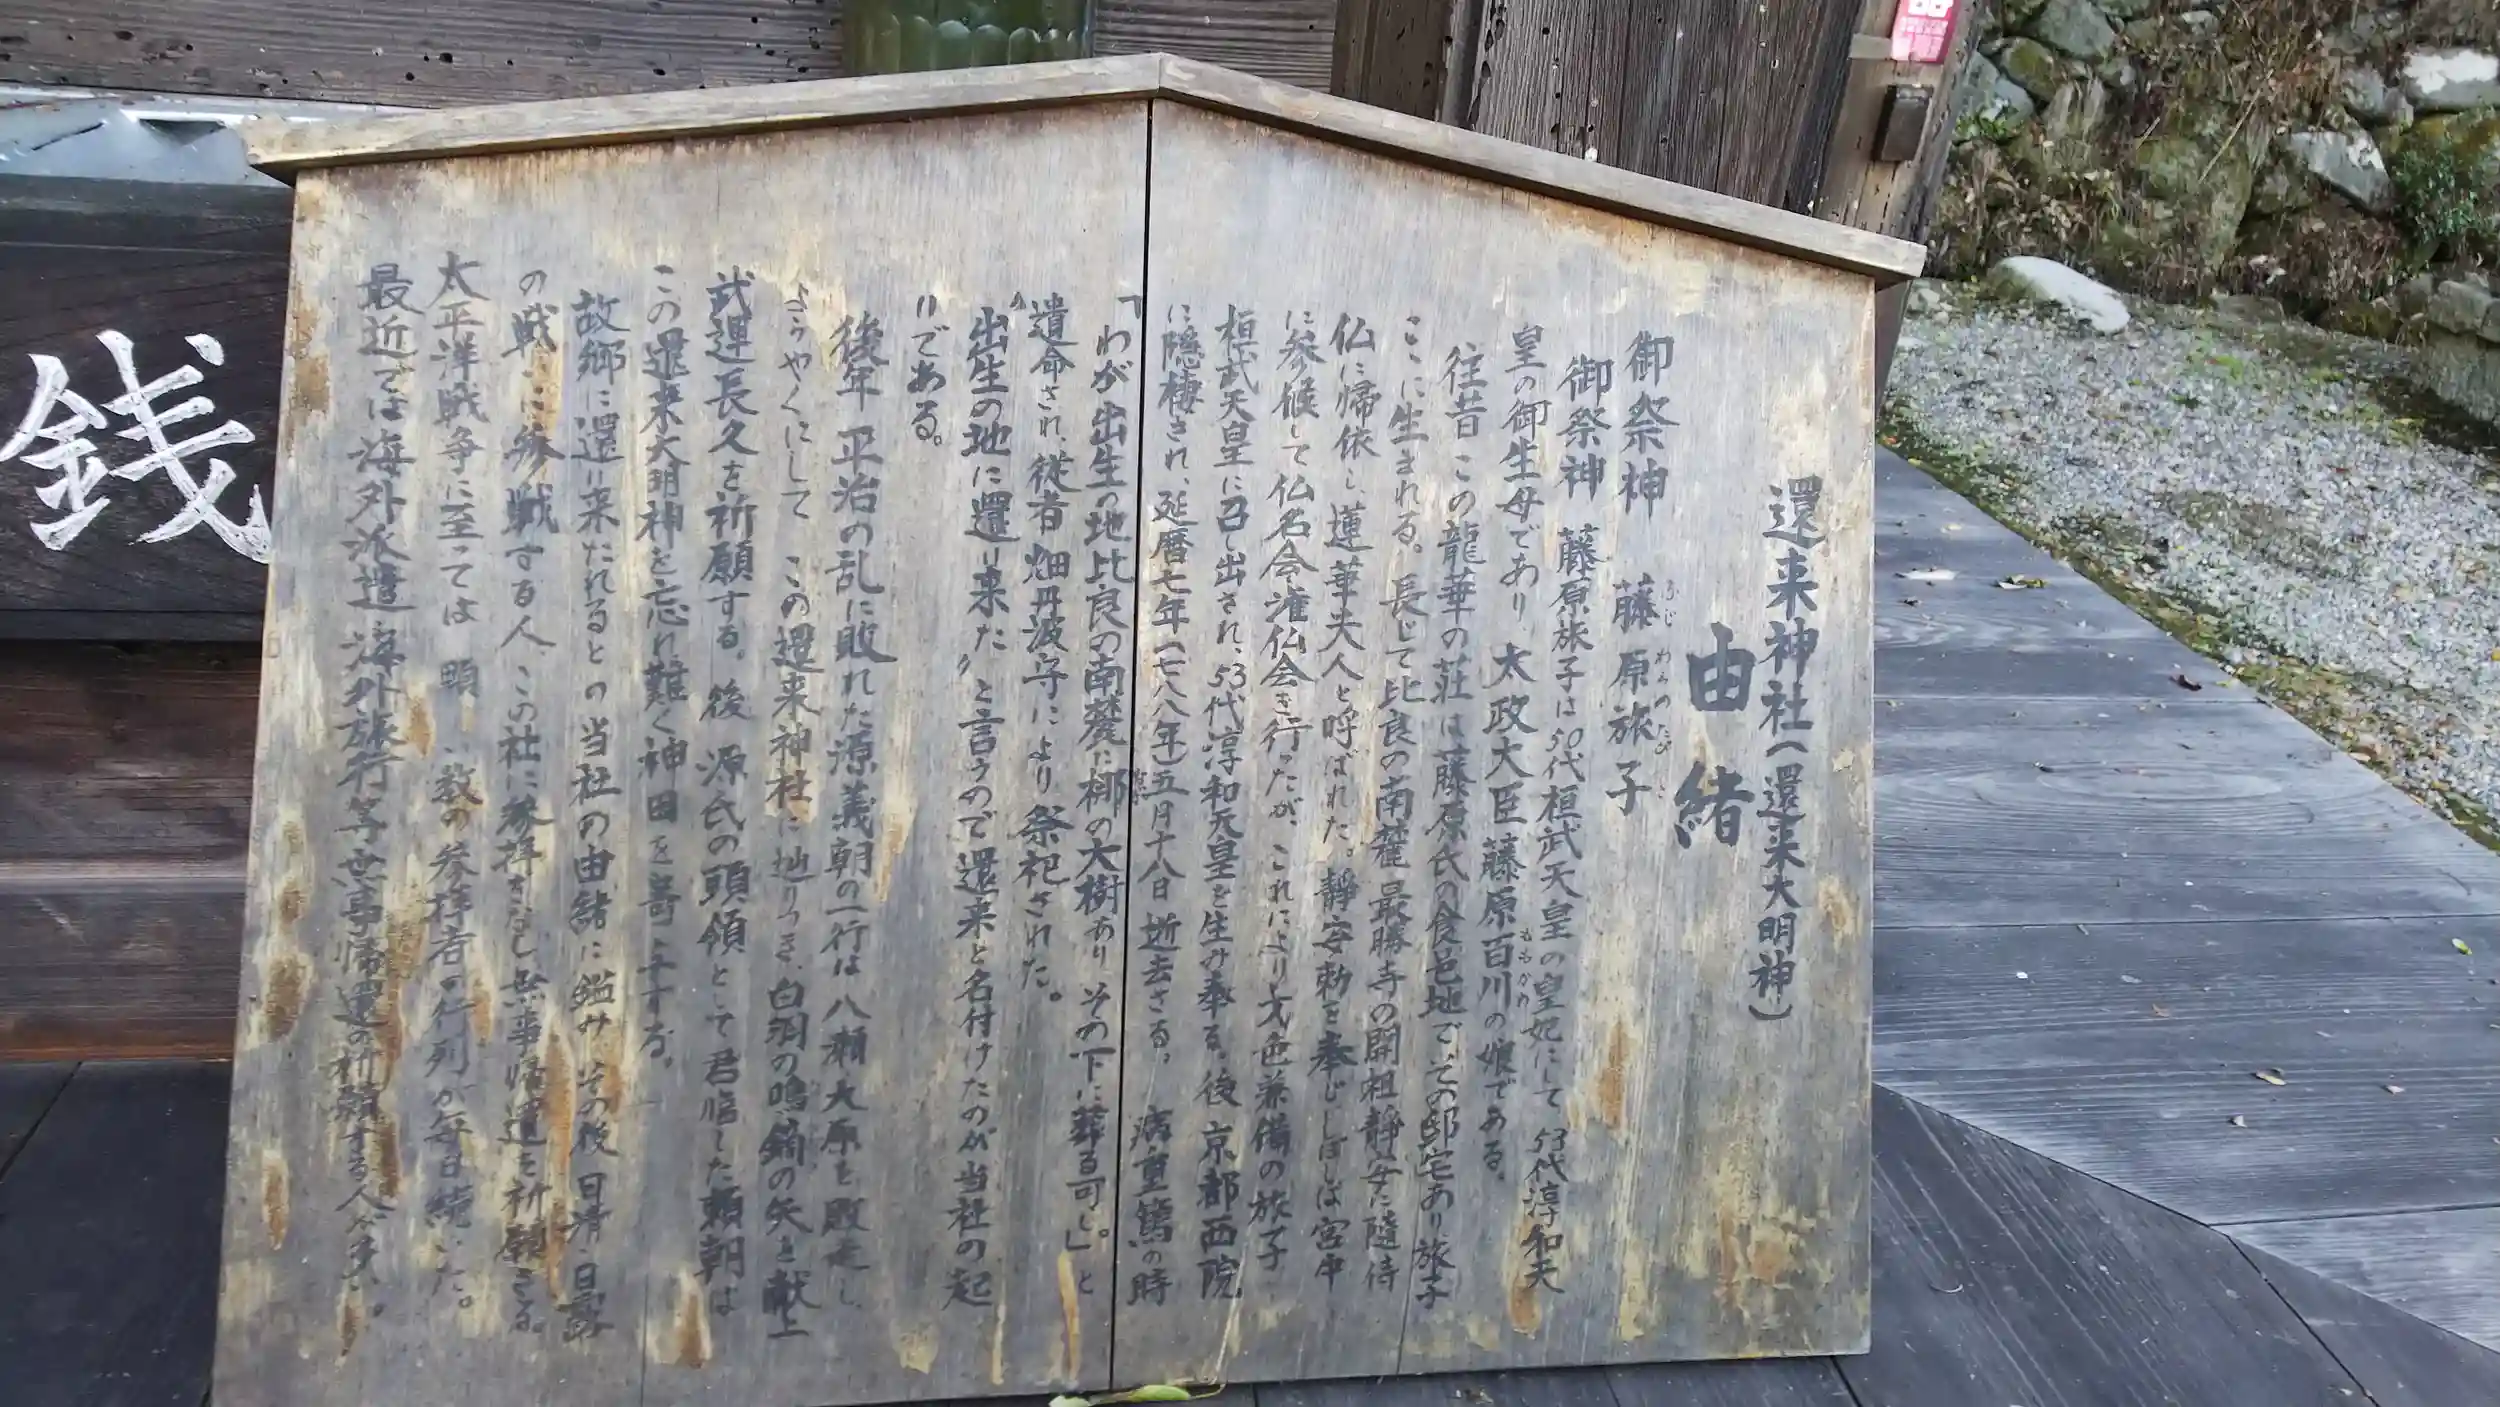 還来神社(還来大明神)
由緒
御祭神 藤原旅子
ふじ わらのたびこ
御祭神 藤原旅子は50代桓武天皇の皇妃にして 53代淳和天
皇の御生母であり、太政大臣藤原百川の娘である。
ももかわ
往昔この龍華の荘は藤原氏の食邑地で、その邸宅あり旅子
ここに生まれる。長じて比良の南麓 最勝寺の開祖静安に随侍
仏に帰依し、蓮華夫人と呼ばれた。静安勅を奉じしばしば宮中
に参候して仏名会潅仏会を行ったが、これにより才色兼備の旅子
桓武天皇に召し出され、53代淳和天皇を生み奉る。後 京都西院
に隠棲され、延暦七年(七八八年)五月十八日逝去さる。病重篤の時
「わが出生の地比良の南麓に梛の大樹あり その下に葬る可し。」と
遺命され、従者 畑丹波守により祭祀された。
〃出生の地に還り来た〃と言うので還来と名付けたのが当社の起
りである。
後年 平治の乱に敗れた源義朝の一行は八瀬大原を敗走し、
ようやくにして この還来神社に辿りつき、白羽の鳴鏑の矢を献上
武運長久を祈願する。後 源氏の頭領として君臨した頼朝は
この還来大明神を忘れ難く神田を寄与する。
故郷に還り来たれるとの当社の由緒に鑑み、その後 日清・日露
の戦いに参戦する人、この社に参拝をなし、無事帰還を祈願さる。
太平洋戦争に至っては 頭い数の参拝者の行列が毎日続いた。
最近では海外派遣 海外旅行等無事帰還の祈願する人が多い。
銭